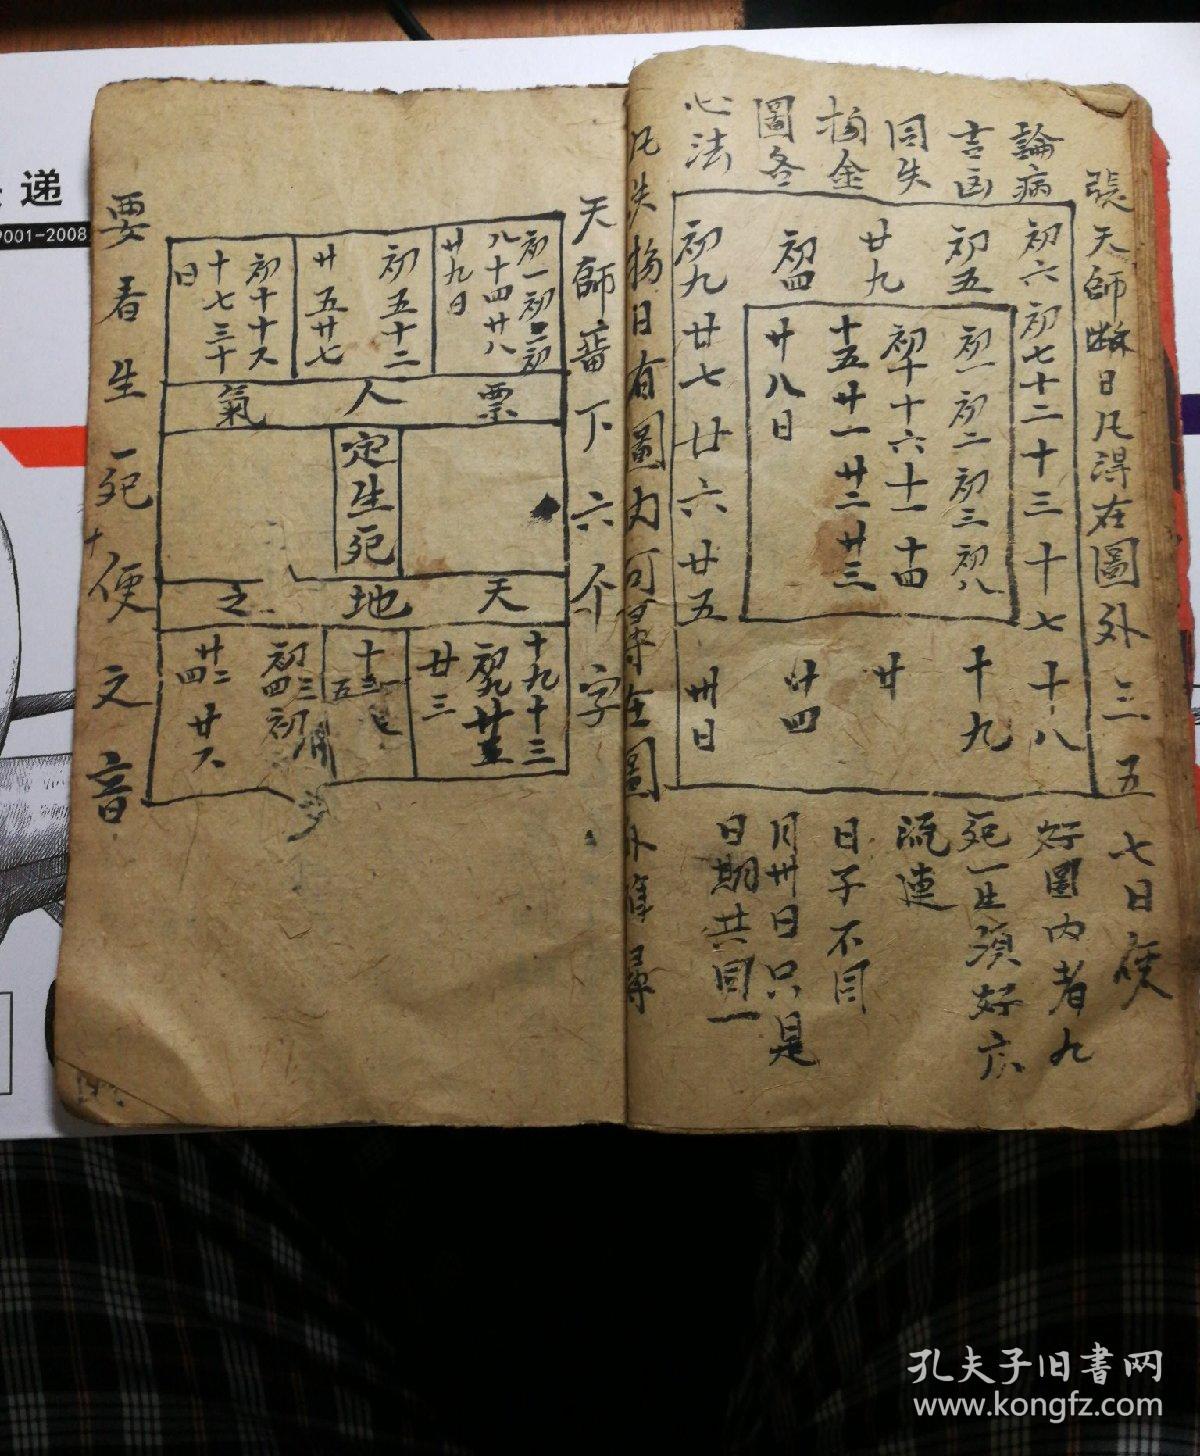 張天師 日凡得在圖外三五七日
論病
吉凶
同失
物金
圖各
心法
初六初七十二十三十七十八
初五
廿九
初四
初九廿七廿六廿五卅日
十九
廿
廿四
初一初二初三初八
初十十六十一十四
十五廿一廿二廿三
廿八日
好圍内者九
死一生須好六
流連
日子不同
月卅日只是
日期共同一
凡失物日有圖内可尋在圖外
天師畨下六个字
初一初二初
八十四廿八
廿九日
初五十二
廿五廿七
初十十六
十七三十
日
票人氣
定生死
天地之
十九十三
廿三
初三初
初四初
廿二
廿四
廿六
要看生死便文音
递
9001-2008
孔夫子旧書网
www.kongfz.com